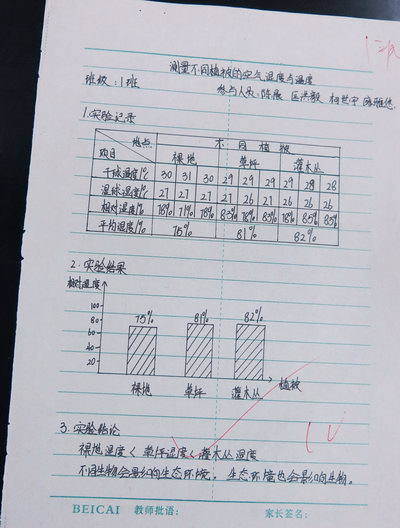 1班
测量不同植被的空气湿度与温度
班级:1班 参与人员:陈晨
1.实验记录
地点 不同植被
项目 裸地 草坪 灌木丛
干球温度/℃ 30 31 30 29 29 29 29 28 28
湿球温度/℃ 27 27 27 27 26 27 26 26 26
相对湿度/% 78% 71% 78% 85% 78% 85% 78% 85% 85%
平均湿度/% 75% 81% 82%
2.实验结果
相对湿度
100
80
60
40
20
75% 81% 82%
裸地 草坪 灌木丛 植被
3.实验结论
裸地湿度<草坪湿度<灌木丛湿度
不同生物会影响生态环境,生态环境也会影响生物。
BEICAI 教师批语: 家长签名: